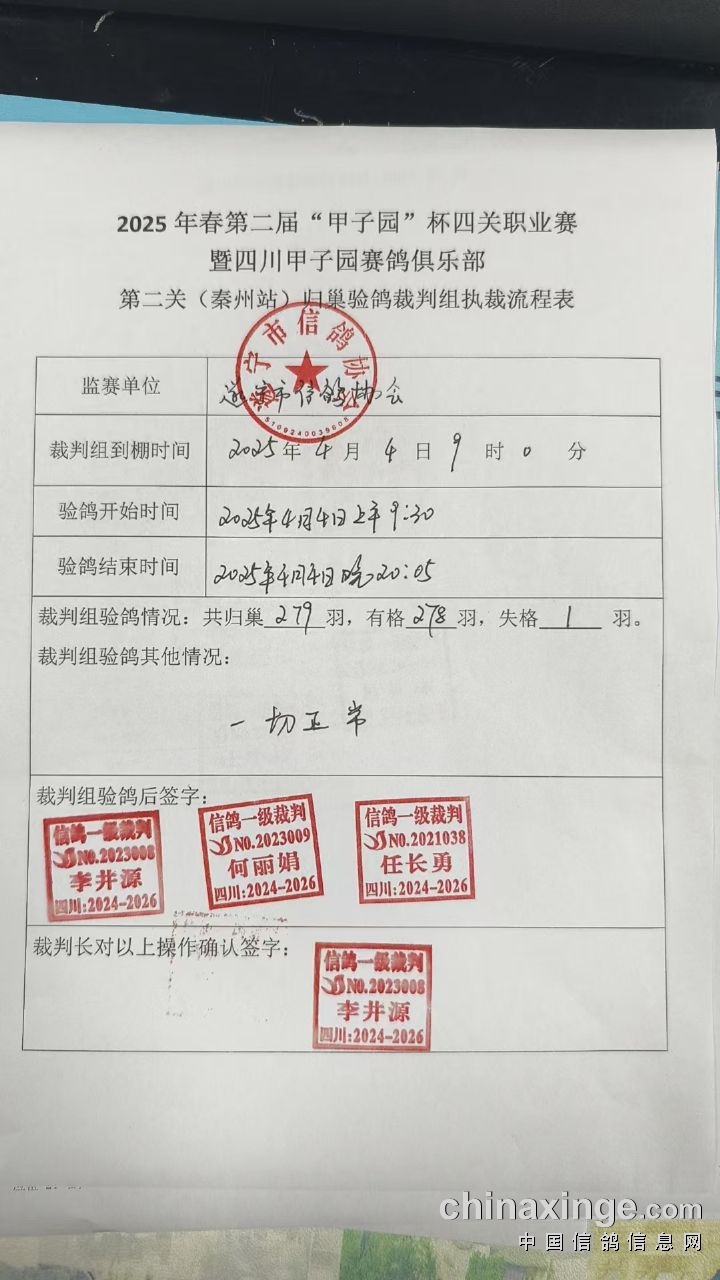 2025 年春第二届“甲子园”杯四关职业赛
暨四川甲子园赛鸽俱乐部
第二关（秦州站）归巢验鸽裁判组执裁流程表
遂宁市信鸽协会
5109240039608
监赛单位 遂宁市信鸽协会
裁判组到棚时间 2025年 4 月 4 日 9 时 0 分
验鸽开始时间 2025年4月4日上午9:30
验鸽结束时间 2025年4月4日晚20:05
裁判组验鸽情况：共归巢 279 羽，有格 278 羽，失格 1 羽。
裁判组验鸽其他情况：
一切正常
裁判组验鸽后签字：
信鸽一级裁判
NO.2023008
李井源
四川:2024-2026
信鸽一级裁判
NO.2023009
何丽娟
四川:2024-2026
信鸽一级裁判
NO.2021038
任长勇
四川:2024-2026
裁判长对以上操作确认签字：
信鸽一级裁判
NO.2023008
李井源
四川:2024-2026
chinaxinge.com
中国信鸽信息网